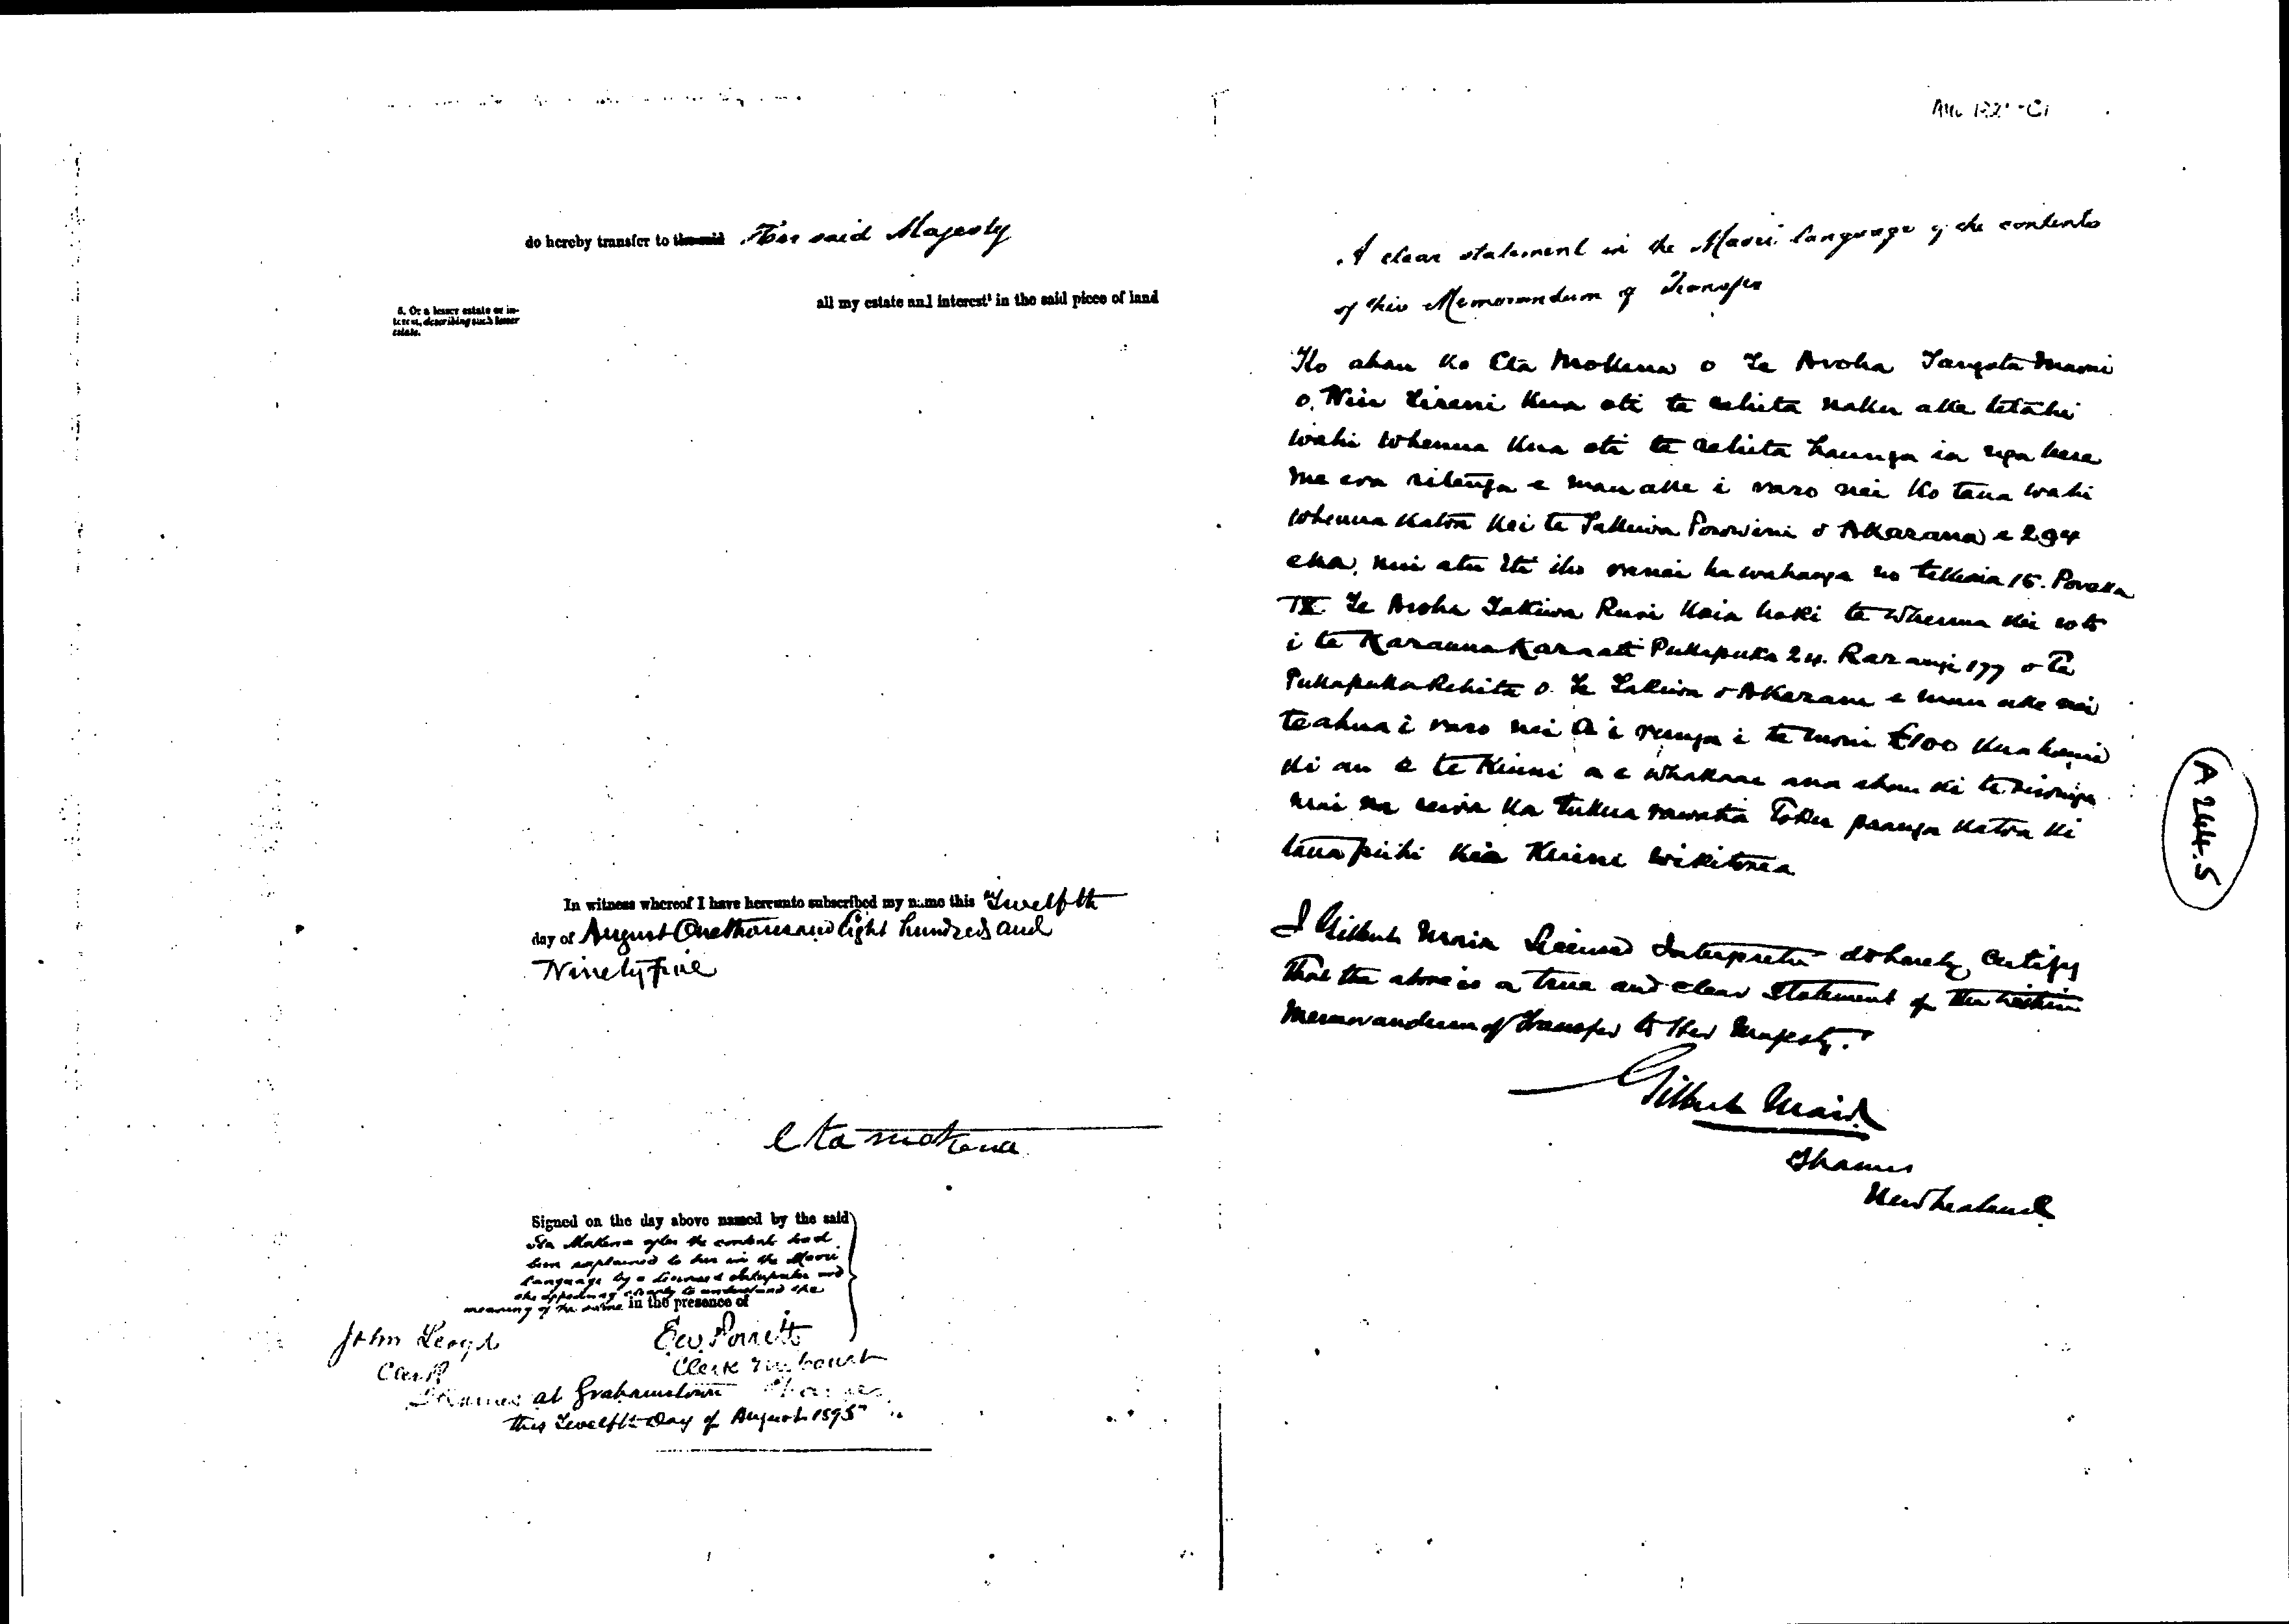 do hereby transfer to the said Her said Majesty
all my estate and interest⁵ in the said piece of land
5. Or a lesser estate or in-
terest, describing such lesser
estate.
In witness whereof I have hereunto subscribed my name this Twelfth
day of August One thousand Eight hundred and
Ninety five
Eta Mokena
Signed on the day above named by the said
Eta Mokena after the contents had
been explained to her in the Maori
language by a licensed Interpreter and
she appearing clearly to understand the
meaning of the same in the presence of
John Lloyd
Clerk
E.W. Porritt
Clerk Court
Thames at Grahamstown
this Twelfth Day of August 1895
A clear statement in the Maori language of the contents
of this Memorandum of Transfer
Ko ahau ko Eta Mokena o Te Aroha Tangata Maori
o Niu Tireni kua oti te rehita naku ake tetahi
wahi whenua kua oti te rehita haunga ia nga here
me era ritenga e mau ake i raro nei Ko taua wahi
whenua katoa kei te Takiwa Porowini o Akarana e 294
eka, nui atu iti iho ranei he wahanga no Tekiona 15. Poraka
IX Te Aroha Takiwa Ruri Koia hoki te whenua kei roto
i te Karauna Karaati Pukapuka 24. Rarangi 177 o te
Pukapuka Rehita o Te Takiwa o Akarana e mau ake nei
te ahua i raro nei A i runga i te moni £100 kua homai
ki au e te Kuini a e whakaae ana ahau ki te rironga
mai na reira ka tukua rawatia toku paanga katoa ki
taua piihi kia Kuini Wikitoria
I Gilbert Mair Licensed Interpreter do hereby certify
that the above is a true and clear statement of the within
Memorandum of Transfer to Her Majesty.
Gilbert Mair
Thames
New Zealand
A 244.5